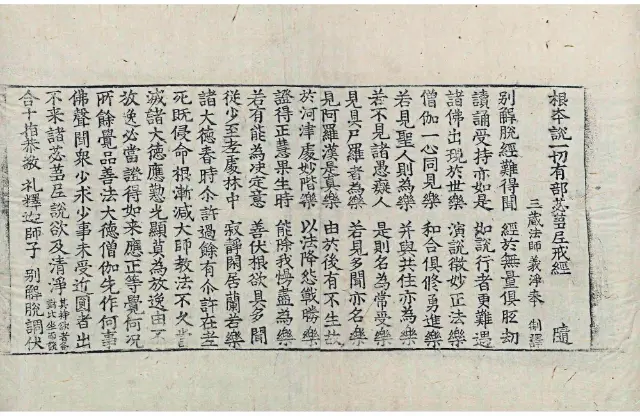 根本說一切有部苾芻尼戒經 隨
三藏法師義淨奉 制譯
別解脫經難得聞 經於無量俱胝劫
讀誦受持亦如是 如說行者更難遇
諸佛出現於世樂 演說微妙正法樂
僧伽一心同見樂 和合俱修勇進樂
若見聖人則為樂 并與共住亦為樂
若不見諸愚癡人 是則名為常受樂
見具尸羅者為樂 若見多聞亦名樂
見阿羅漢是真樂 由於後有不生故
於河津處妙階樂 以法降怨戰勝樂
證得正慧果生時 能除我慢盡為樂
若有能為決定意 善伏根欲具多聞
從少至老處林中 寂靜閑居蘭若樂
諸大德春時尒許過餘有尒許在老
死既侵命根漸減大師教法不久當
滅諸大德應勤光顯莫為放逸由不
放逸必當證得如來應正等覺何況
所餘覺品善法大德僧伽先作何事
佛聲聞衆少求少事未受近圓者出
不來諸苾芻尼說欲及清淨
合十指恭敬 礼釋迦師子 別解脫調伏